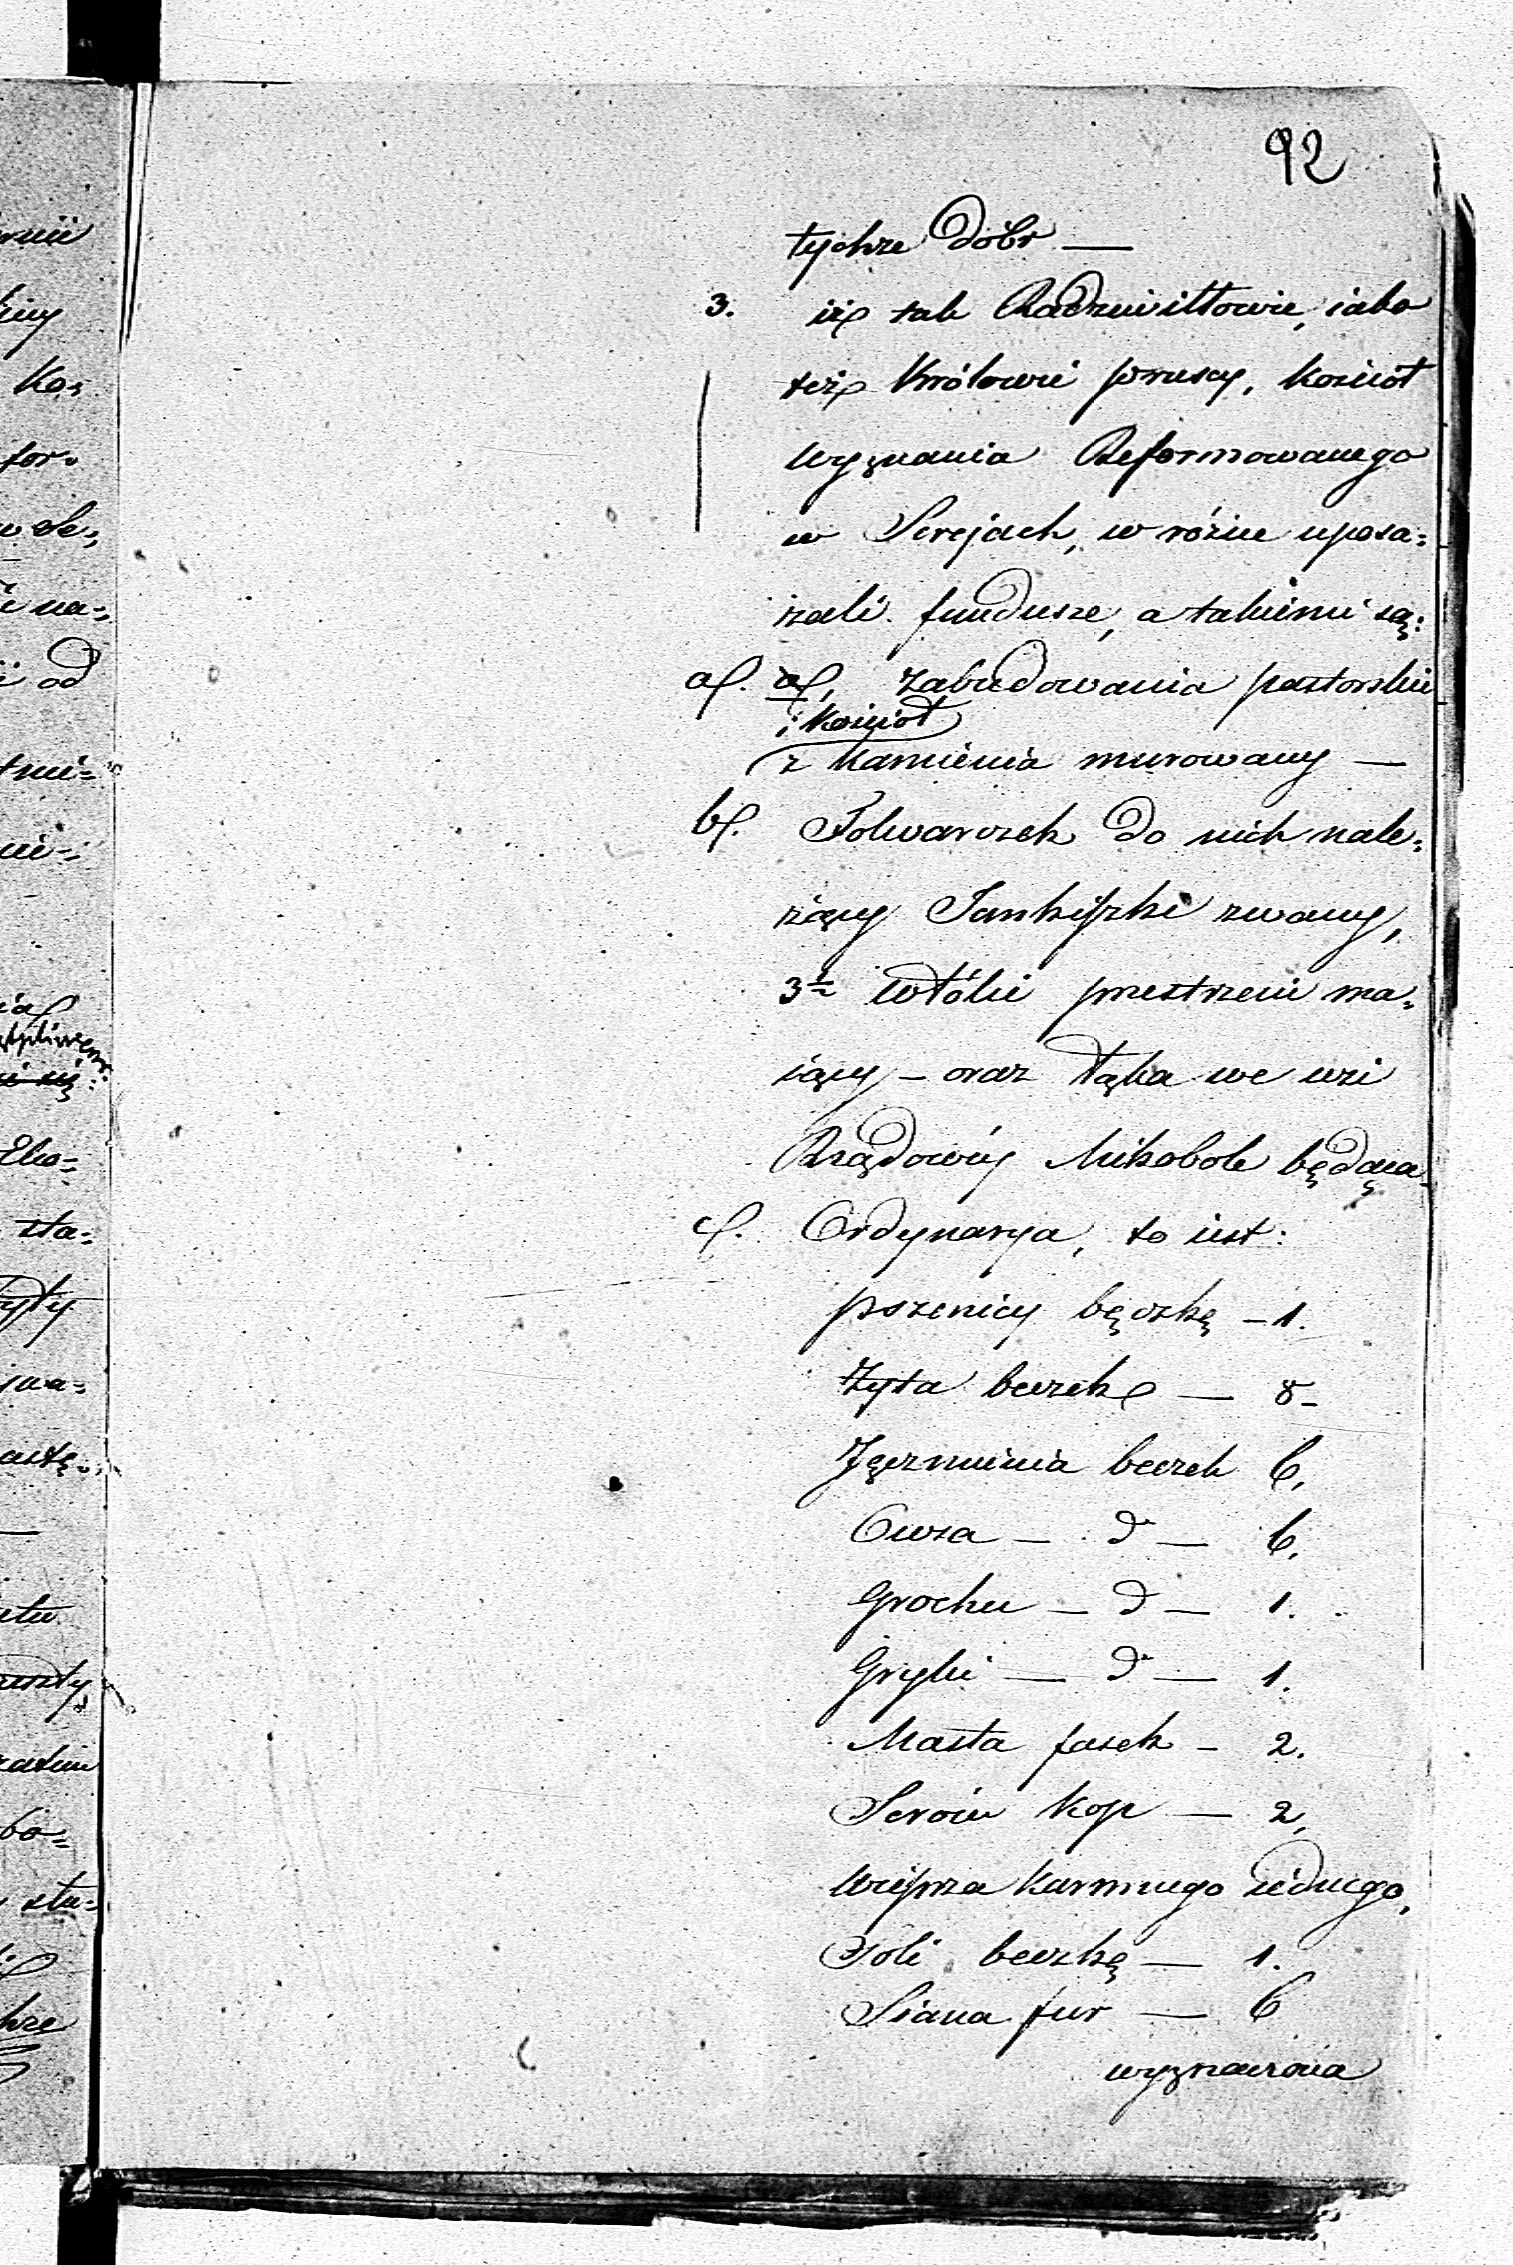 92
tychże Dóbr —
3. iż tak Radziwiłłowie, iako
też Królowie pruscy, Kościoł
wyznania Reformowanego
w Serejach, w różne uposa=
żali fundusze, a takiemi są:
a/. a/, zabudowania pastorskie
i Kościoł
z kamienia murowany —
b/. Folwarczek do nich nale=
żący zwany,
3½ włóki przestrzeni ma=
iący – oraz łąka we wsi
Rządowéy Mikobole będąca.
c/. Ordynarya, to iest:
pszenicy bęczkę – 1.
Żyta beczek — 8 –
Jęczmienia beczek 6,
Owsa — d° — 6.
Grochu — d° — 1.
Gryki — d° — 1.
Masła fasek – 2.
Serów kop — 2,
wieprza karmnego iednego,
Soli beczkę — 1.
Siana fur — 6
wyznania